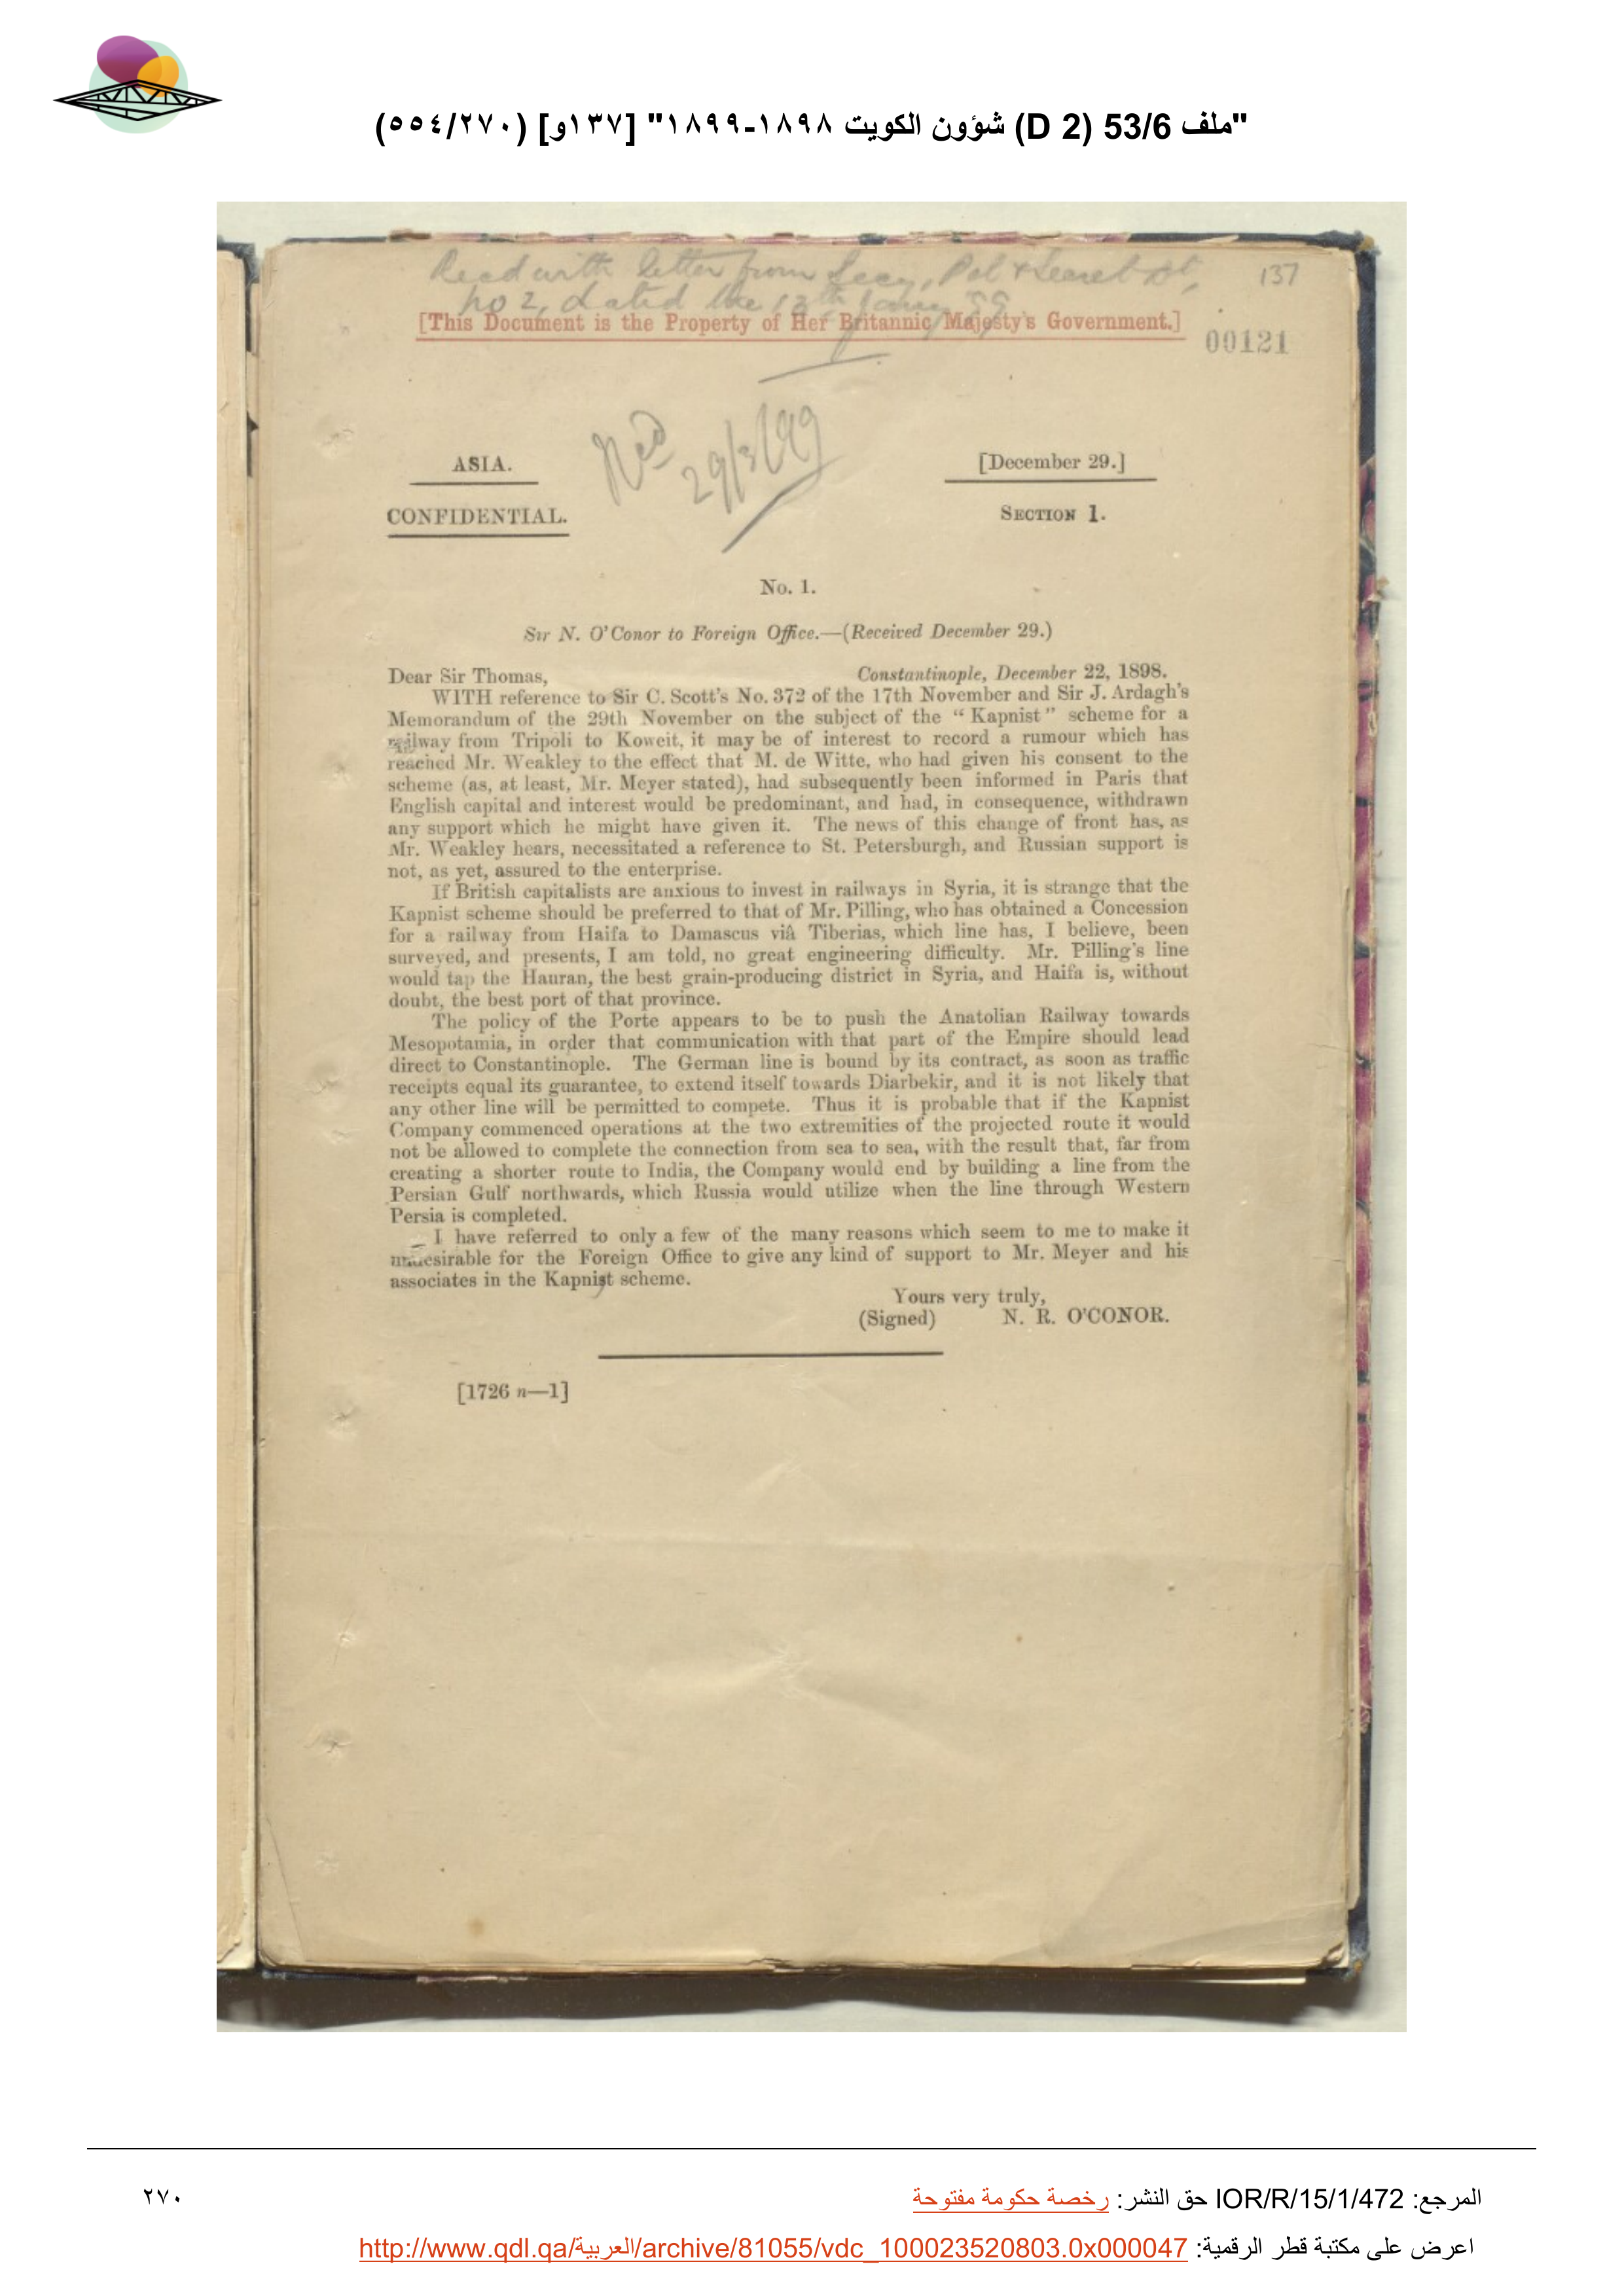 "ملف 53/6 (D 2) شؤون الكويت ١٨٩٨-١٨٩٩" [١٣٧و] (٢٧٠/٥٥٤)
Recd with letter from Secy, Pol & Secret Dt,
No 2, dated the 13th Jany 99
137
[This Document is the Property of Her Britannic Majesty's Government.]
00121
Recd 29/3/99
ASIA.
[December 29.]
CONFIDENTIAL.
SECTION 1.
No. 1.
Sir N. O'Conor to Foreign Office.—(Received December 29.)
Dear Sir Thomas, Constantinople, December 22, 1898.
WITH reference to Sir C. Scott's No. 372 of the 17th November and Sir J. Ardagh's
Memorandum of the 29th November on the subject of the "Kapnist" scheme for a
railway from Tripoli to Koweit, it may be of interest to record a rumour which has
reached Mr. Weakley to the effect that M. de Witte, who had given his consent to the
scheme (as, at least, Mr. Meyer stated), had subsequently been informed in Paris that
English capital and interest would be predominant, and had, in consequence, withdrawn
any support which he might have given it. The news of this change of front has, as
Mr. Weakley hears, necessitated a reference to St. Petersburgh, and Russian support is
not, as yet, assured to the enterprise.
If British capitalists are anxious to invest in railways in Syria, it is strange that the
Kapnist scheme should be preferred to that of Mr. Pilling, who has obtained a Concession
for a railway from Haifa to Damascus viâ Tiberias, which line has, I believe, been
surveyed, and presents, I am told, no great engineering difficulty. Mr. Pilling's line
would tap the Hauran, the best grain-producing district in Syria, and Haifa is, without
doubt, the best port of that province.
The policy of the Porte appears to be to push the Anatolian Railway towards
Mesopotamia, in order that communication with that part of the Empire should lead
direct to Constantinople. The German line is bound by its contract, as soon as traffic
receipts equal its guarantee, to extend itself towards Diarbekir, and it is not likely that
any other line will be permitted to compete. Thus it is probable that if the Kapnist
Company commenced operations at the two extremities of the projected route it would
not be allowed to complete the connection from sea to sea, with the result that, far from
creating a shorter route to India, the Company would end by building a line from the
Persian Gulf northwards, which Russia would utilize when the line through Western
Persia is completed.
I have referred to only a few of the many reasons which seem to me to make it
undesirable for the Foreign Office to give any kind of support to Mr. Meyer and his
associates in the Kapnist scheme.
Yours very truly,
(Signed) N. R. O'CONOR.
[1726 n—1]
المرجع: IOR/R/15/1/472 حق النشر: رخصة حكومة مفتوحة
٢٧٠
اعرض على مكتبة قطر الرقمية: http://www.qdl.qa/العربية/archive/81055/vdc_100023520803.0x000047